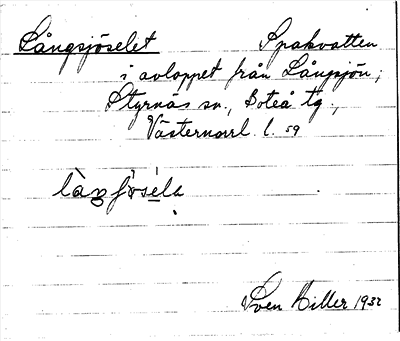 Långsjöselet Spakvatten
i avloppet från Långsjön,
Styrnäs sn., Boteå tg.,
Västernorrl. l. 59
Sven Hiller 1932